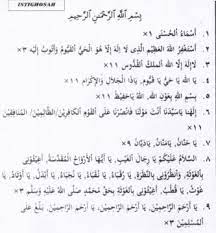 ISTIGHOSAH
بِسْمِ اللهِ الرَّحْمٰنِ الرَّحِيْمِ
١. أَسْمَاءُ الْحُسْنَى ×١
٢. أَسْتَغْفِرُ اللهَ الْعَظِيْمَ الَّذِى لَا إِلٰهَ إِلَّا هُوَ الْحَيُّ الْقَيُّوْمُ وَأَتُوْبُ إِلَيْهِ ×٣
٣. لَا إِلٰهَ إِلَّا اللهُ الْمَلِكُ الْقُدُّوْسُ ×١١
٤. يَا اللهُ يَا حَيُّ يَا قَيُّوْمُ، يَا ذَا الْجَلَالِ وَالْإِكْرَامِ ×١١
٥. بِسْمِ اللهِ بِعَوْنِ اللهِ، اللهُ يَا حَفِيْظُ ×١١
٦. يَا إِلٰهَنَا يَا سَيِّدَنَا أَنْتَ مَوْلَانَا فَانْصُرْنَا عَلَى الْقَوْمِ الْكَافِرِيْنَ/الظَّالِمِيْنَ/الْمُنَافِقِيْنَ
×١١
٧. يَا حَنَّانُ، يَا مَنَّانُ، يَا دَيَّانُ ×٩
٨. السَّلَامُ عَلَيْكُمْ يَا رِجَالَ الْغَيْبِ، يَا أَيُّهَا الْأَرْوَاحُ الْمُقَدَّسَةُ، أَغِيْثُوْنِى
بِالْغَوْثَةِ، وَانْظُرُوْنِى بِالنَّظْرَةِ، يَا رُقَبَاءُ، يَا نُجَبَاءُ، يَا
غَوْثُ، يَا قُطْبُ، أَغِيْثُوْنِى بِالْغَوْثَةِ بِحَقِّ مُحَمَّدٍ صَلَّى اللهُ عَلَيْهِ وَسَلَّمَ ×٣
٩. يَا أَرْحَمَ الرَّاحِمِيْنَ، يَا أَرْحَمَ الرَّاحِمِيْنَ، يَا أَرْحَمَ الرَّاحِمِيْنَ، عَلَى
الْمُسْلِمِيْنَ ×٣